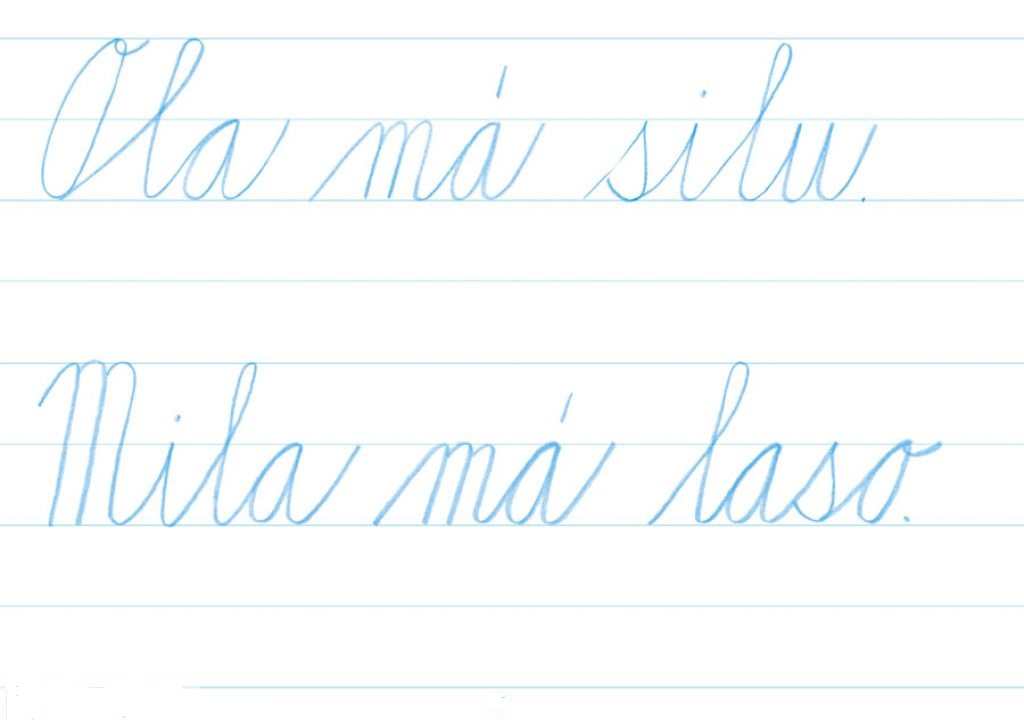 Ola má silu.
Mila má laso.